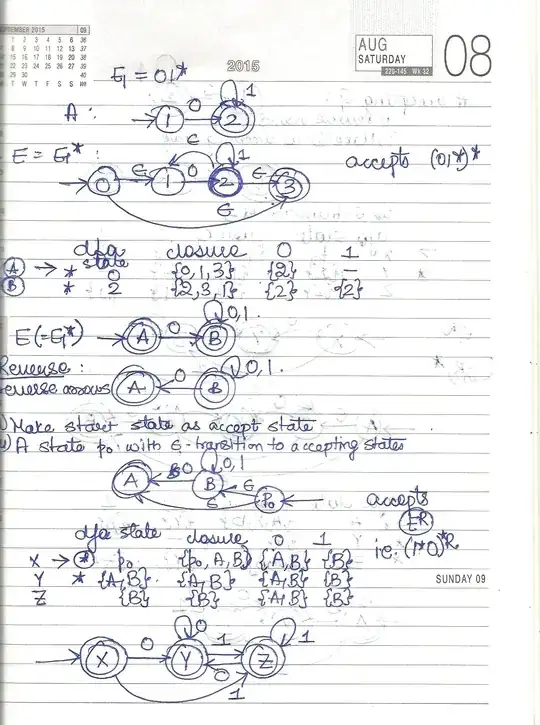 SEPTEMBER 2015 09
1 2 3 4 5 6 36
7 8 9 10 11 12 13 37
14 15 16 17 18 19 20 38
21 22 23 24 25 26 27 39
28 29 30 40
M T W T F S S Wk
2015
AUG
SATURDAY
220-145 Wk 32
08
E₁ = 01*
A: 1 0 2 1
E = E₁*: 0 ϵ 1 0 2 ϵ 3 ϵ 1 ϵ
accepts (01*)*
dfa state closure 0 1
A → * 0 {0,1,3} {2} —
B * 2 {2,3,1} {2} {2}
E(=E₁*) A 0 B 0,1.
Reverse:
reverse arrows A 0 B 0,1.
i) Make start state as accept state
ii) A state p₀ with ϵ-transition to accepting states
A 0 B 0,1 ϵ p₀ ϵ
accepts
Eᴿ
ie. (1*0)*ᴿ
dfa state closure 0 1
X → * p₀ {p₀, A, B} {A,B} {B}
Y * {A,B} {A,B} {A,B} {B}
Z {B} {B} {A,B} {B}
SUNDAY 09
X 0 Y 0 1 Z 1 0 1